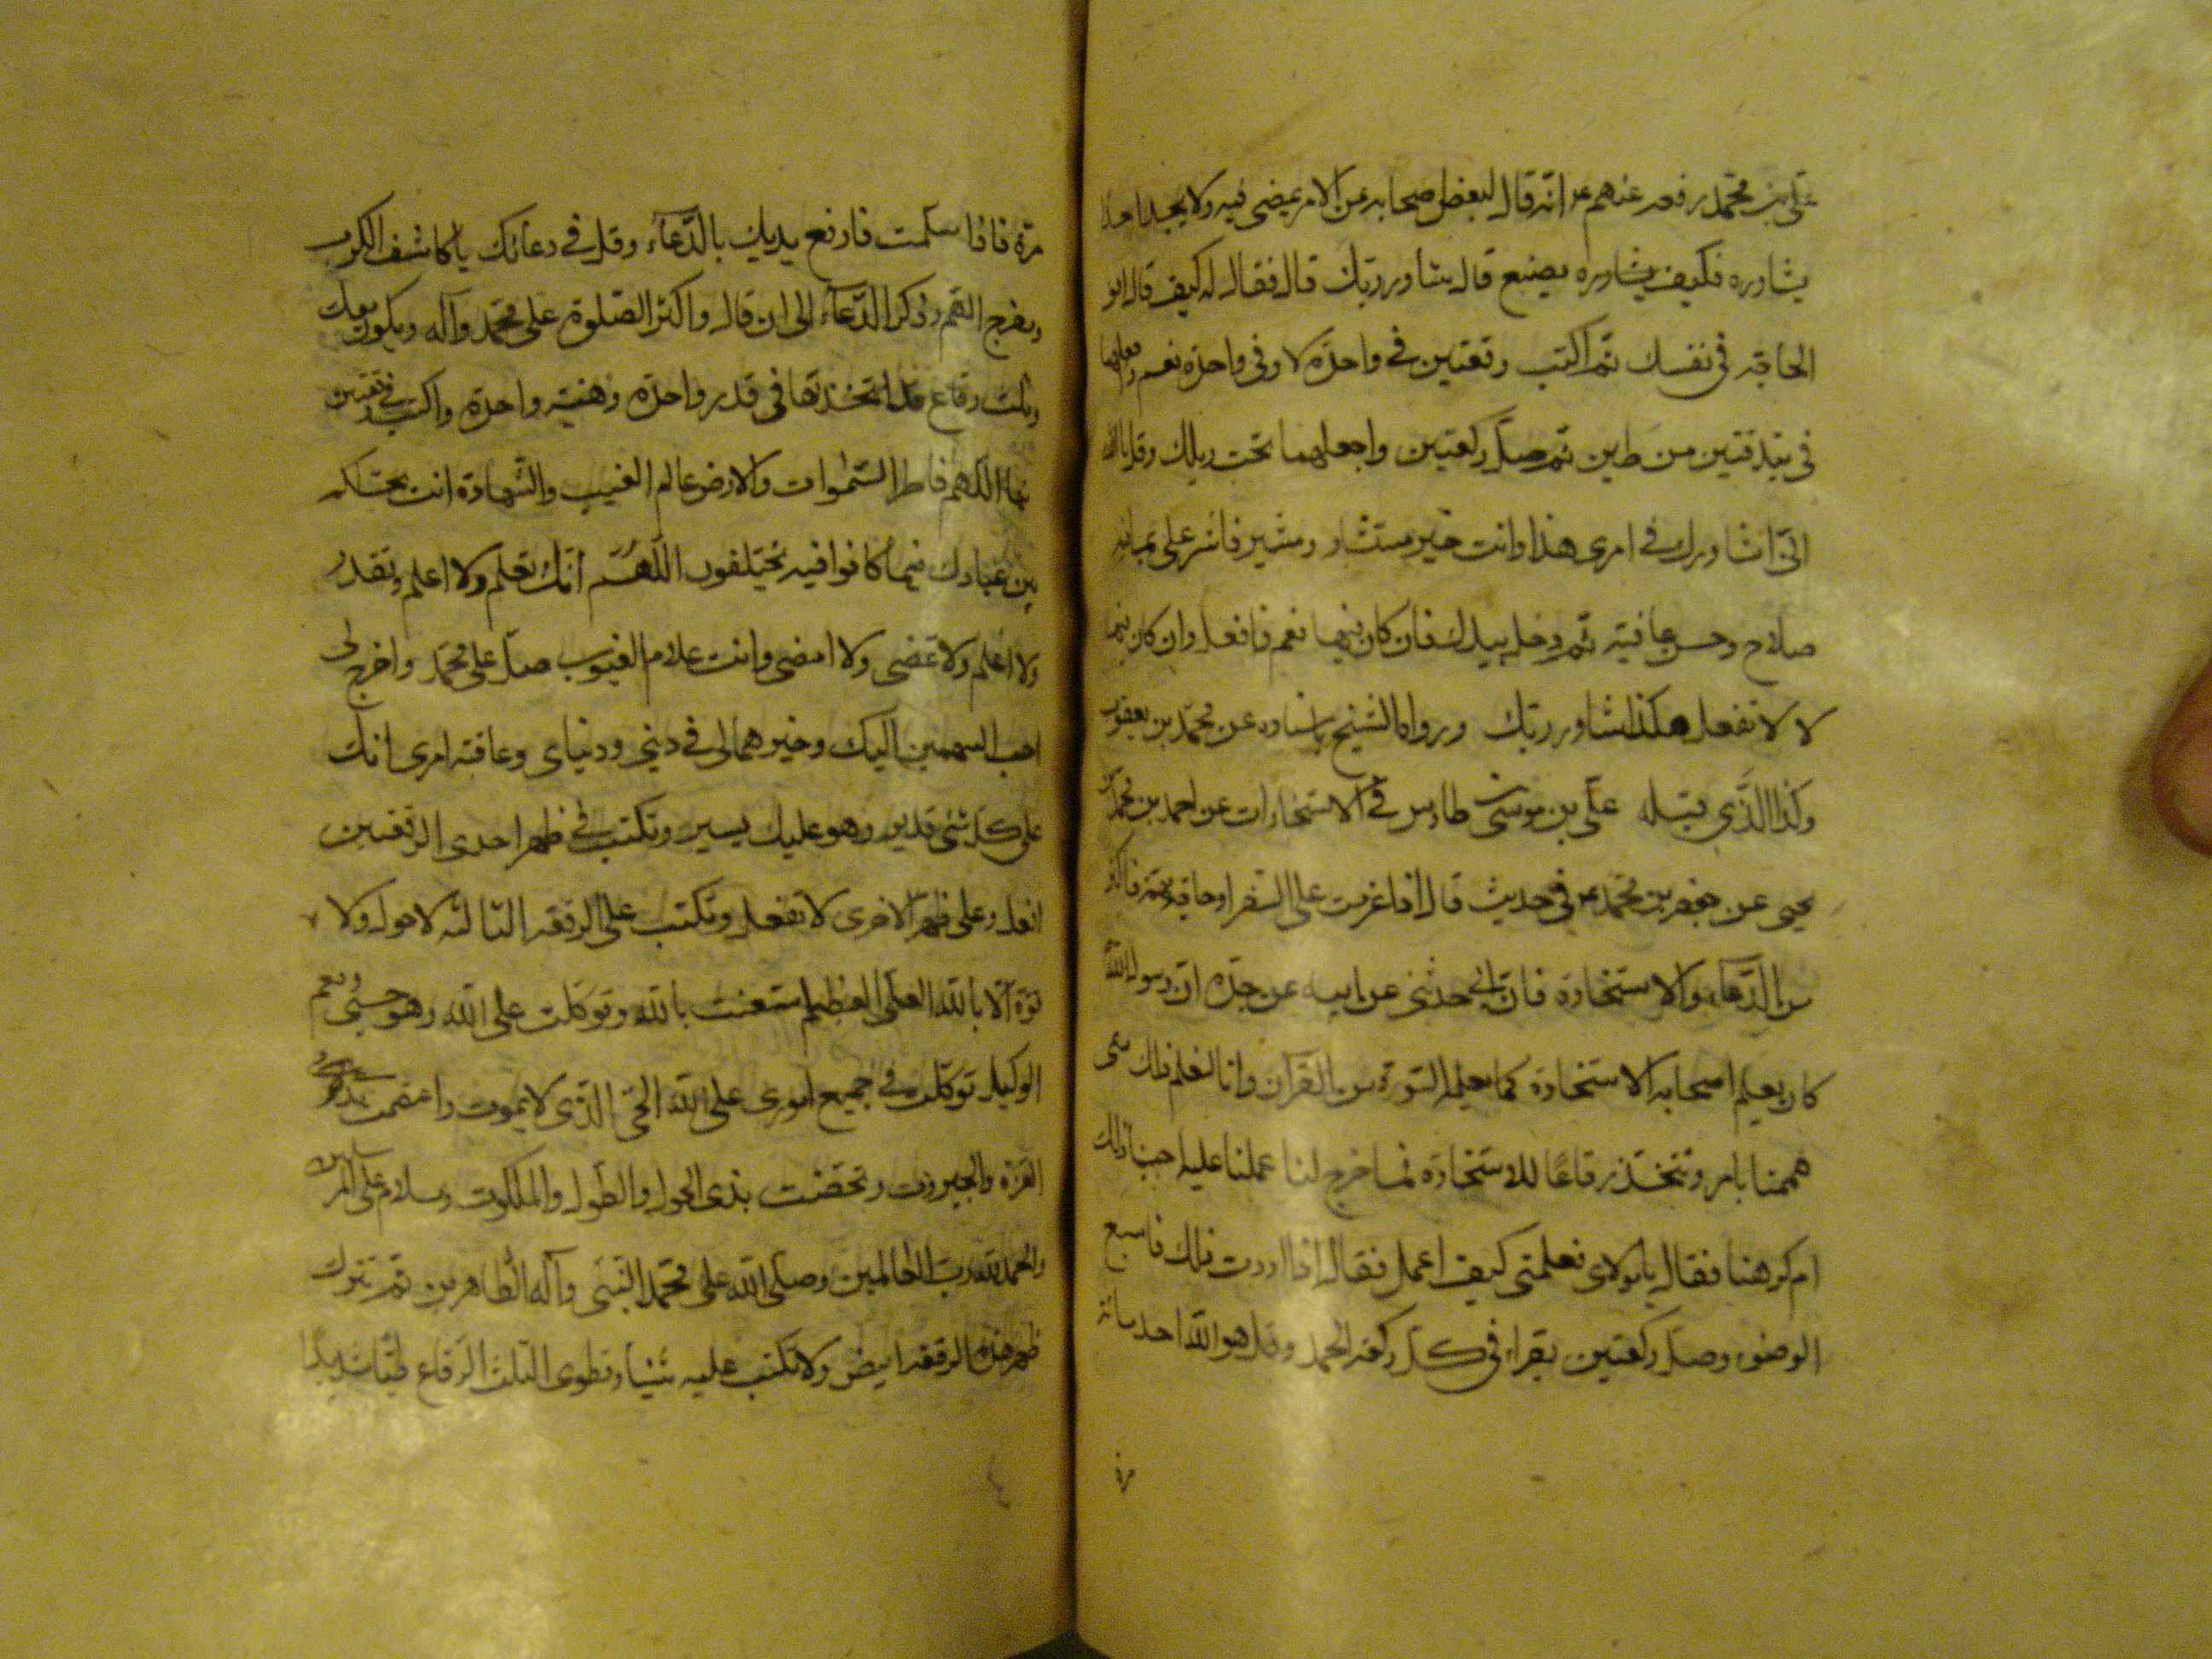 علي بن محمد رفعه عنهم ع انه قال لبعض اصحابه عن الامر يمضي فيه ولا يجد احدا
يشاوره فكيف يشاوره يصنع قال يشاور ربك قال فقال له كيف قال انو
الحاجة في نفسك ثم اكتب رقعتين في واحدة لا وفي واحدة نعم واجعلهما
في بندقتين من طين ثم صل ركعتين واجعلهما تحت ذيلك وقل يا الله
اني اشاورك في امري هذا وانت خير مستشار ومشير فاشر علي بما فيه
صلاح وحسن عافية ثم ادخل يدك فان كان فيها نعم فافعل وان كان فيها
لا لا تفعل هكذا شاور ربك ورواه الشيخ باسناده عن محمد بن يعقوب
وكذا الذي قبله علي بن موسى بن طاوس في الاستخارات عن احمد بن محمد بن
يحيى عن جعفر بن محمد ع في حديث قال اذا عزمت على السفر او حاجة مهمة فاكثر
من الدعاء والاستخارة فان ابي حدثني عن ابيه عن جده ان رسول الله
كان يعلم اصحابه الاستخارة كما يعلم السورة من القرآن وانا لنعمل ذلك متى
هممنا بامر ونتخذ رقاعا للاستخارة فما خرج لنا عملنا عليه احببنا ذلك
ام كرهنا فقال يا مولاي فعلمني كيف اعمل فقال اذا اردت ذلك فاسبغ
الوضوء وصل ركعتين يقراء في كل ركعة الحمد وقل هو الله احد مائة
مرة
مرة فاذا سلمت فارفع يديك بالدعاء وقل في دعائك يا كاشف الكرب
ومفرج الهم وذكر الدعاء الى ان قال واكثر الصلوة على محمد وآله ويكون معك
ثلث رقاع قد اتخذتها في قدر واحدة وهيئة واحدة واكتب في رقعتين
منها اللهم فاطر السموات والارض عالم الغيب والشهادة انت تحكم
بين عبادك فيما كانوا فيه يختلفون اللهم انك تعلم ولا اعلم وتقدر
ولا اعلم ولا تمضي ولا امضي وانت علام الغيوب صل على محمد واخرج لي
احب السهمين اليك وخيرهما لي في ديني ودنياي وعاقبة امري انك
على كل شئ قدير وهو عليك يسير وتكتب في ظهر احدى الرقعتين
افعل وعلى ظهر الاخرى لا تفعل وتكتب على الرقعة الثالثة لا حول ولا
قوة الا بالله العلي العظيم استعنت بالله وتوكلت على الله وهو حسبي ونعم
الوكيل توكلت في جميع اموري على الله الحي الذي لا يموت واعتصمت بذي
العزة والجبروت وتحصنت بذي الحول والطول والملكوت وسلام على المرسلين
والحمد لله رب العالمين وصلى الله على محمد النبي وآله الطاهرين ثم تترك
ظهر هذه الرقعة ابيض ولا تكتب عليه شيئا وتطوي الثلث الرقاع طيا شديدا